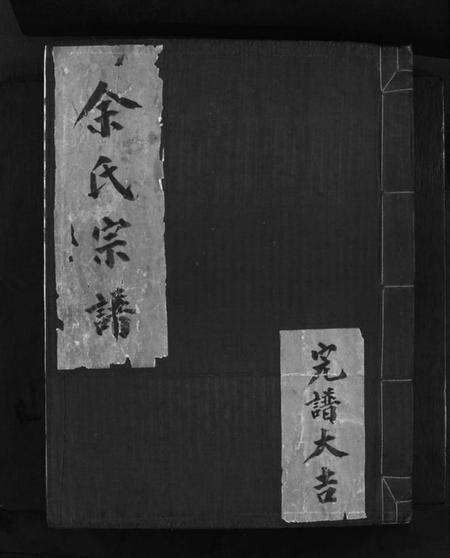 余氏宗譜
完譜大吉